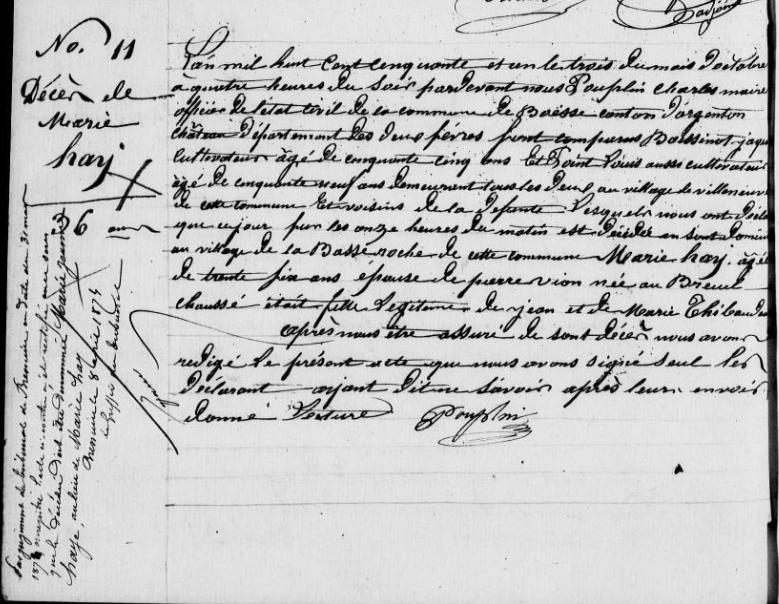 No. 11
Décès de
Marie
hay
36 ans
L'an mil huit cent cinquante et un le trois du mois d'octobre
a quatre heures du soir pardevant nous Pouplin Charles maire
officier de l'etat civil de la commune de Boësse canton d'argenton
château département des deux sèvres sont comparus Boissinot jaque
cultivateur âgé de cinquante cinq ans Et Point Louis aussi cultivateur
âgé de cinquante neuf ans demeurant tous les deux au village de villeneuve
de cette commune Et voisins de la defunte Lesquels nous ont déclaré
que ce jour sur les onze heures du matin est décédée en sont domicile
au village de la Basse roche de cette commune Marie hay, agée
de trente six ans epouse de pierre vion née au Breuil
chaussé était fille legitime de jean et de Marie Thibaudeau
après nous être assuré de sont décès nous avons
redigé le présent acte que nous avons signé seul les
déclarant ayant dit ne savoir après leur en voir
donné Lecture Pouplin
Par jugement du tribunal de Bressuire en date du 31 mars
1874 enregistré l'acte ci-contre a été rectifié en ce sens
que la décédée doit être dénommée Marie Jeanne
haye, au lieu de Marie hay
Bressuire le 8 avril 1874
le greffier du tribunal